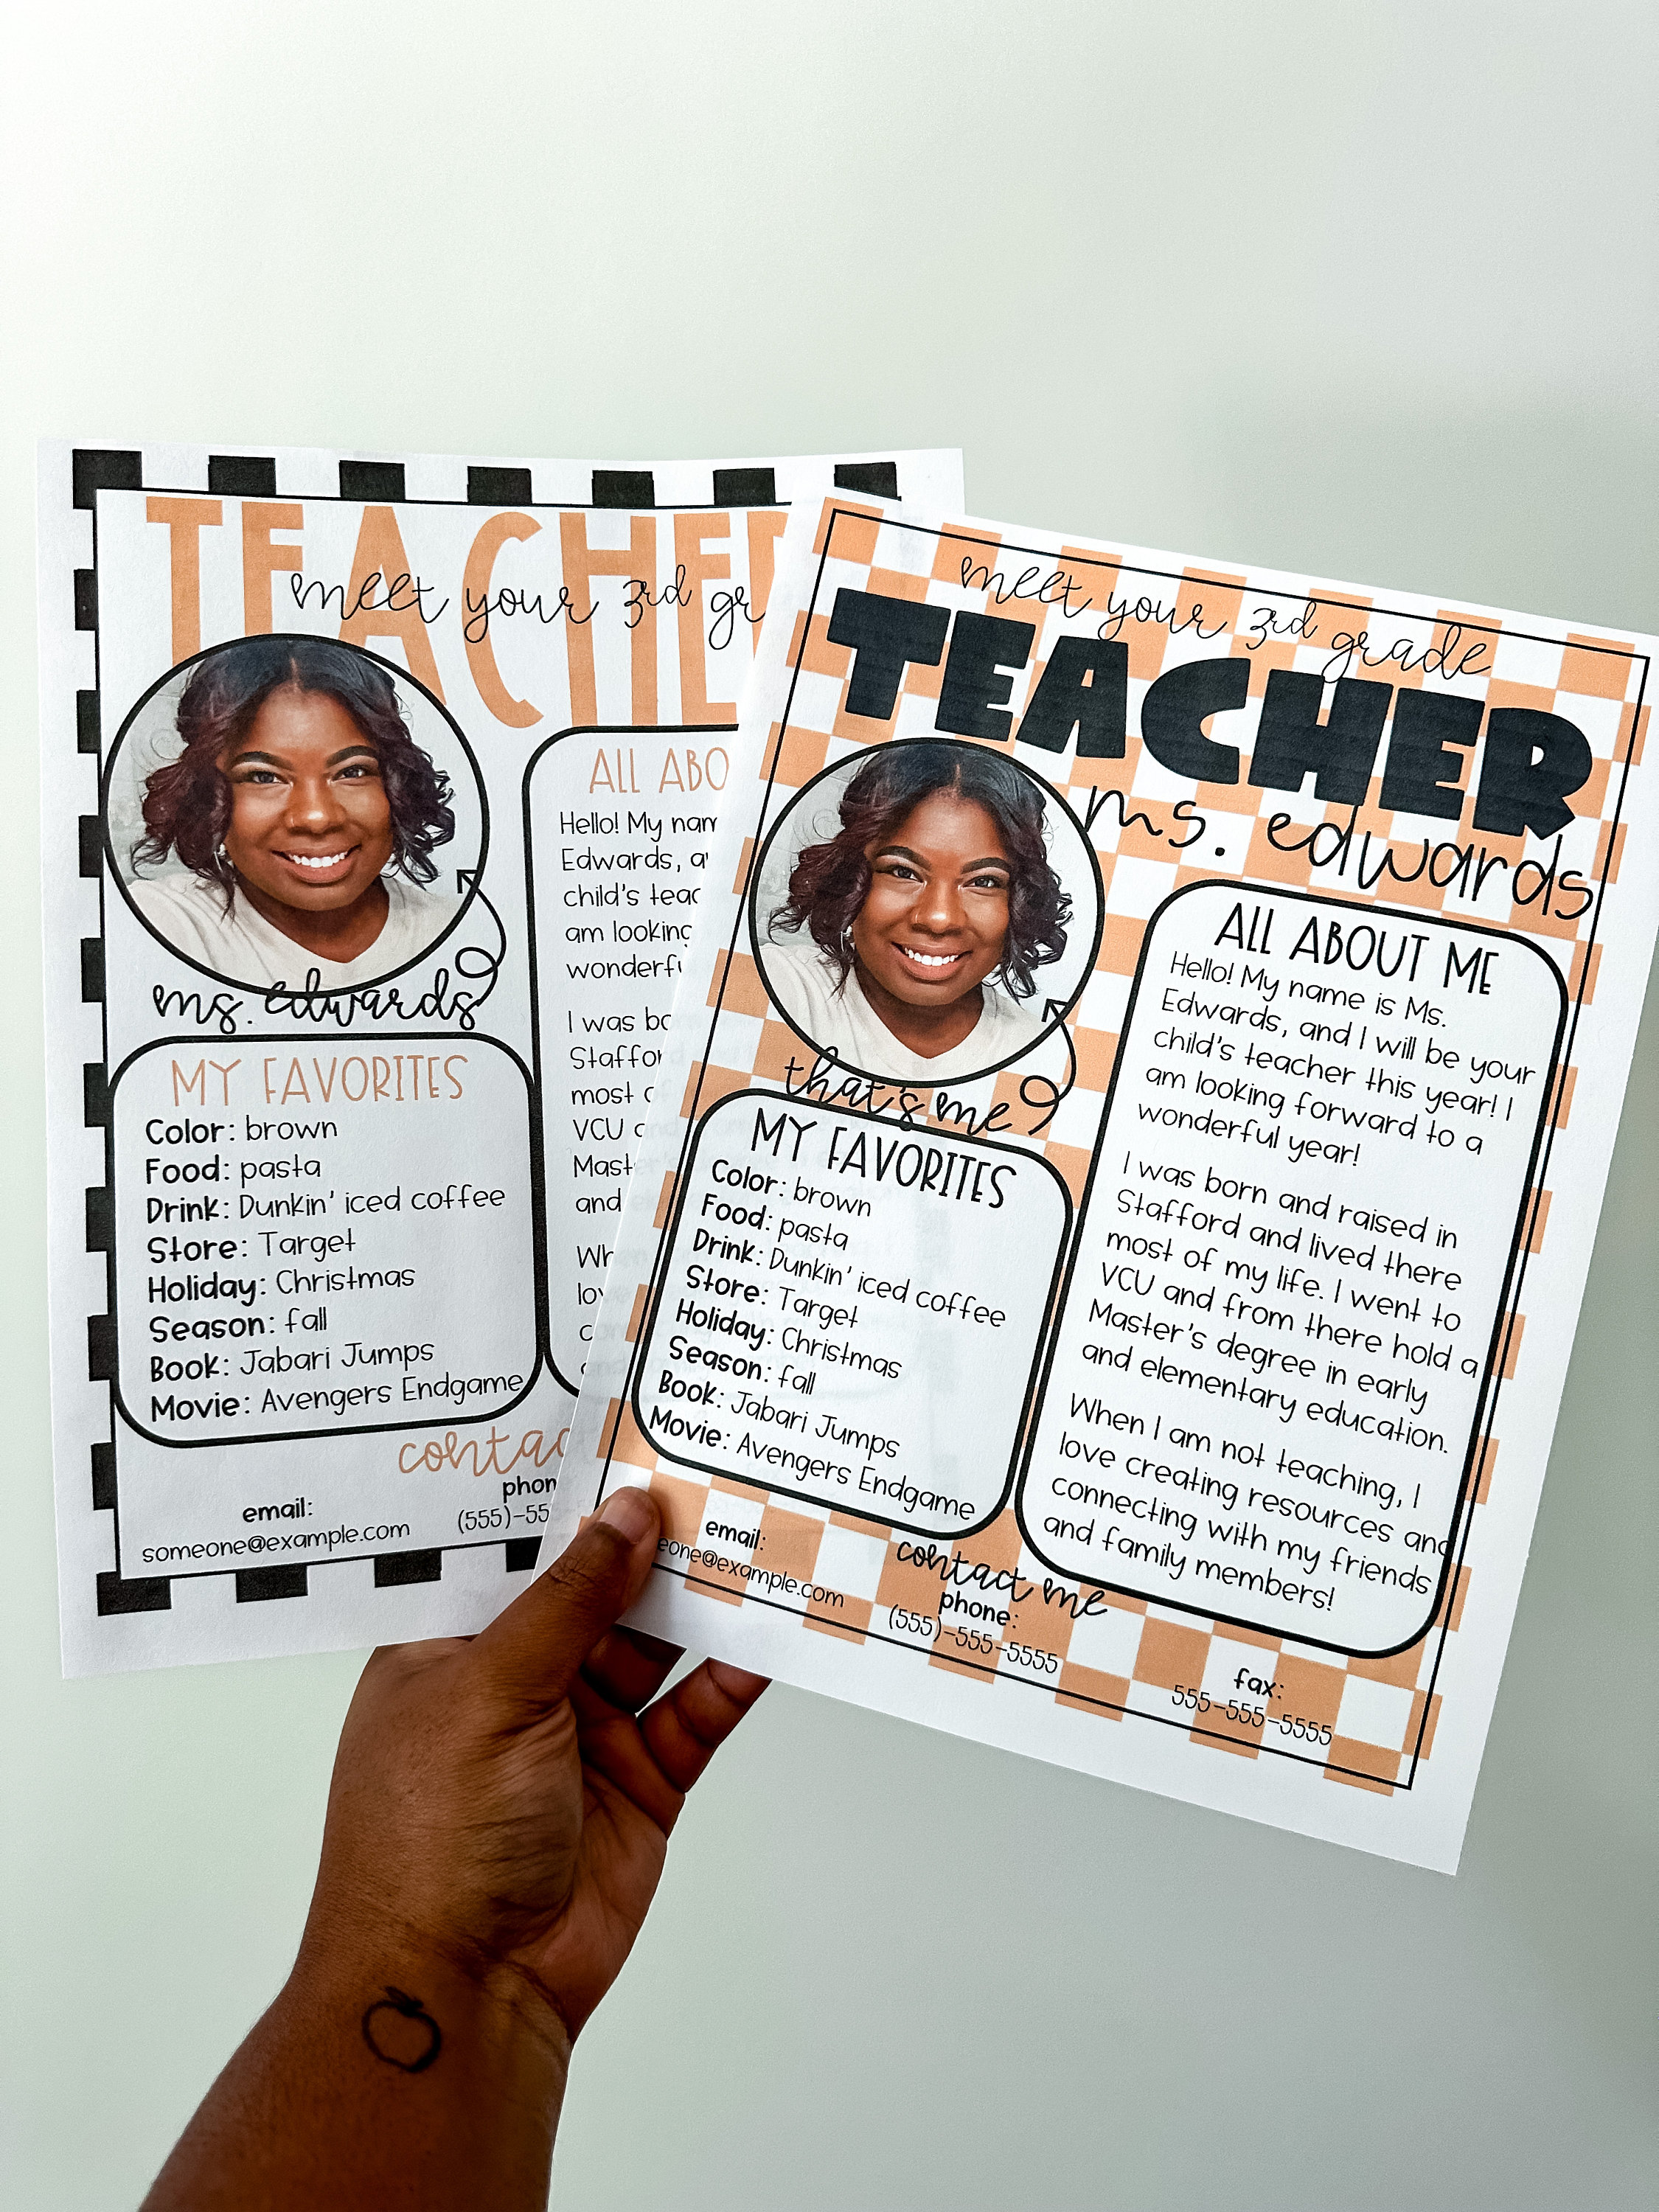 TEACHER
meet your 3rd gr
ms. edwards
MY FAVORITES
Color: brown
Food: pasta
Drink: Dunkin' iced coffee
Store: Target
Holiday: Christmas
Season: fall
Book: Jabari Jumps
Movie: Avengers Endgame
ALL ABO
Hello! My nam
Edwards, a
child's teac
am looking
wonderfu
I was bo
Staffor
most o
VCU
Mast
and
Wh
lov
c
contac
email:
someone@example.com
phon
(555)-55
meet your 3rd grade
TEACHER
ms. edwards
that's me
MY FAVORITES
Color: brown
Food: pasta
Drink: Dunkin' iced coffee
Store: Target
Holiday: Christmas
Season: fall
Book: Jabari Jumps
Movie: Avengers Endgame
ALL ABOUT ME
Hello! My name is Ms.
Edwards, and I will be your
child's teacher this year! I
am looking forward to a
wonderful year!
I was born and raised in
Stafford and lived there
most of my life. I went to
VCU and from there hold a
Master's degree in early
and elementary education.
When I am not teaching, I
love creating resources and
connecting with my friends
and family members!
contact me
email:
eone@example.com
phone:
(555)-555-5555
fax:
555-555-5555